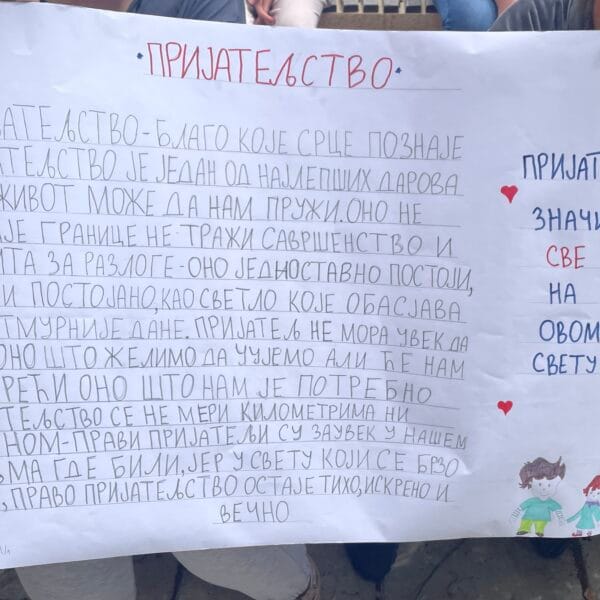 •ПРИЈАТЕЉСТВО•
ЈАТЕЉСТВО-БЛАГО КОЈЕ СРЦЕ ПОЗНАЈЕ
АТЕЉСТВО ЈЕ ЈЕДАН ОД НАЈЛЕПШИХ ДАРОВА
ЖИВОТ МОЖЕ ДА НАМ ПРУЖИ. ОНО НЕ
ЈЕ ГРАНИЦЕ НЕ ТРАЖИ САВРШЕНСТВО И
ИТА ЗА РАЗЛОГЕ-ОНО ЈЕДНОСТАВНО ПОСТОЈИ,
И ПОСТОЈАНО, КАО СВЕТЛО КОЈЕ ОБАСЈАВА
ТМУРНИЈЕ ДАНЕ. ПРИЈАТЕЉ НЕ МОРА УВЕК ДА
ОНО ШТО ЖЕЛИМО ДА ЧУЈЕМО АЛИ ЋЕ НАМ
РЕЋИ ОНО ШТО НАМ ЈЕ ПОТРЕБНО
ТЕЉСТВО СЕ НЕ МЕРИ КИЛОМЕТРИМА НИ
НОМ-ПРАВИ ПРИЈАТЕЉИ СУ ЗАУВЕК У НАШЕМ
МА ГДЕ БИЛИ, ЈЕР У СВЕТУ КОЈИ СЕ БРЗО
, ПРАВО ПРИЈАТЕЉСТВО ОСТАЈЕ ТИХО, ИСКРЕНО И
ВЕЧНО
ПРИЈАТ
ЗНАЧИ
СВЕ
НА
ОВОМ
СВЕТУ